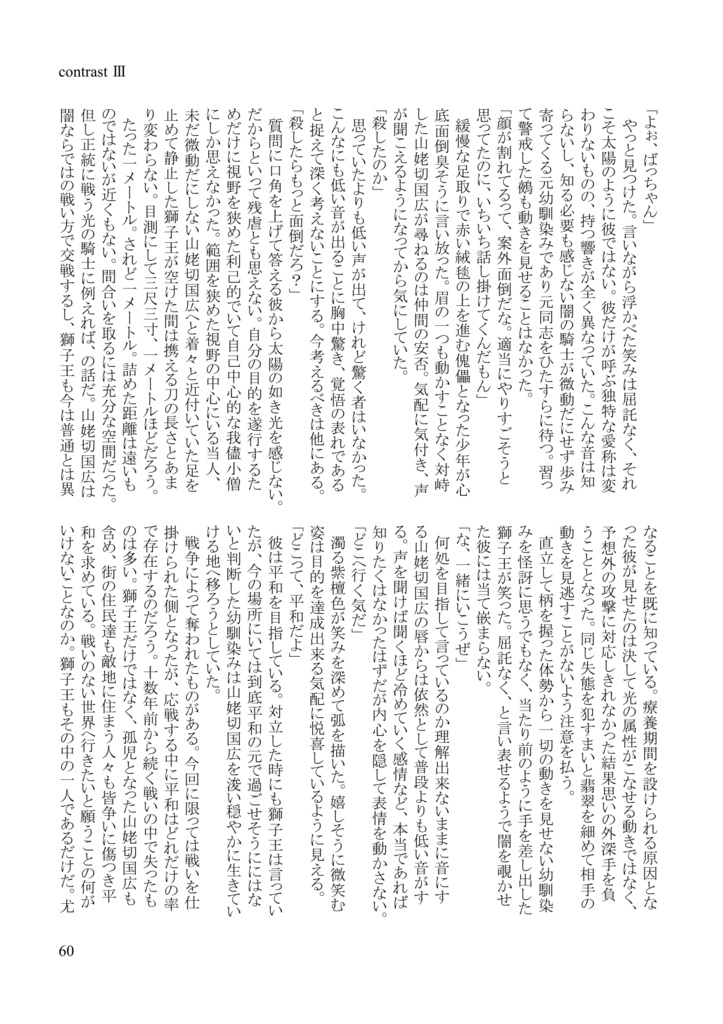 contrast Ⅲ
「よぉ、ばっちゃん」
　やっと見つけた。言いながら浮かべた笑みは屈託なく、それ
こそ太陽のように彼ではない。彼だけが呼ぶ独特な愛称は変
わりないものの、持つ響きが全く異なっていた。こんな音は知
らないし、知る必要も感じない闇の騎士が微動だにせず歩み
寄ってくる元幼馴染みであり元同志をひたすらに待つ。習っ
て警戒した鵺も動きを見せることはなかった。
「顔が割れてるって、案外面倒だな。適当にやりすごそうと
思ってたのに、いちいち話し掛けてくんだもん」
　緩慢な足取りで赤い絨毯の上を進む傀儡となった少年が心
底面倒臭そうに言い放った。眉の一つも動かすことなく対峙
した山姥切国広が尋ねるのは仲間の安否。気配に気付き、声
が聞こえるようになってから気にしていた。
「殺したのか」
　思っていたよりも低い声が出て、けれど驚く者はいなかった。
こんなにも低い音が出ることに胸中驚き、覚悟の表れである
と捉えて深く考えないことにする。今考えるべきは他にある。
「殺したらもっと面倒だろ？」
　質問に口角を上げて答える彼から太陽の如き光を感じない。
だからといって残虐とも思えない。自分の目的を遂行するた
めだけに視野を狭めた利己的でいて自己中心的な我儘小僧
にしか思えなかった。範囲を狭めた視野の中心にいる当人、
未だ微動だにしない山姥切国広へと着々と近付いていた足を
止めて静止した獅子王が空けた間は携える刀の長さとあま
り変わらない。目測にして三尺三寸、一メートルほどだろう。
　たった一メートル。されど一メートル。詰めた距離は遠いも
のではないが近くもない。間合いを取るには充分な空間だった。
但し正統に戦う光の騎士に例えれば、の話だ。山姥切国広は
闇ならではの戦い方で交戦するし、獅子王も今は普通とは異
なることを既に知っている。療養期間を設けられる原因とな
った彼が見せたのは決して光の属性がこなせる動きではなく、
予想外の攻撃に対応しきれなかった結果思いの外深手を負
うこととなった。同じ失態を犯すまいと翡翠を細めて相手の
動きを見逃すことがないよう注意を払う。
　直立して柄を握った体勢から一切の動きを見せない幼馴染
みを怪訝に思うでもなく、当たり前のように手を差し出した
獅子王が笑った。屈託なく、と言い表せるようで闇を覗かせ
た彼には当て嵌まらない。
「な、一緒にいこうぜ」
　何処を目指して言っているのか理解出来ないままに音にす
る山姥切国広の唇からは依然として普段よりも低い音がす
る。声を聞けば聞くほど冷めていく感情など、本当であれば
知りたくはなかったはずだが内心を隠して表情を動かさない。
「どこへ行く気だ」
　濁る紫檀色が笑みを深めて弧を描いた。嬉しそうに微笑む
姿は目的を達成出来る気配に悦喜しているように見える。
「どこって、平和だよ」
　彼は平和を目指している。対立した時にも獅子王は言ってい
たが、今の場所にいては到底平和の元で過ごせそうにはな
いと判断した幼馴染みは山姥切国広を浚い穏やかに生きてい
ける地へ移ろうとしていた。
　戦争によって奪われたものがある。今回に限っては戦いを仕
掛けられた側となったが、応戦する中に平和はどれだけの率
で存在するのだろう。十数年前から続く戦いの中で失ったも
のは多い。獅子王だけではなく、孤児となった山姥切国広も
含め、街の住民達も敵地に住まう人々も皆争いに傷つき平
和を求めている。戦いのない世界へ行きたいと願うことの何が
いけないことなのか。獅子王もその中の一人であるだけだ。尤
60